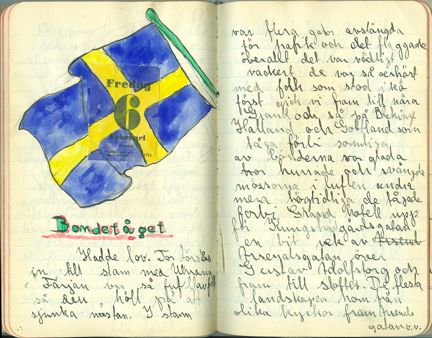 Fredag
6
Februari
Bondetåget
Hadde lov. For först
in till stam med Wrang
Färjan var så full
så den höll på att
sjunka nästan. I stam
var flera gator avstängda
för trafik och det flaggade
överallt det var väldigt
vackert de var så oerhört
med folk som stod i kö
först gick vi fram till nära
Grand och såg på Blekinge
Halland och Gottland som
tåga förbi somliga
av bönderna var glada
och svängde
mössorna i luften andra
mera högtidliga de tågade
förbi Grand hotell upp
för Kungsträdgårdsgatan
en bit
Arsenalsgatan över
Gustav Adolfstorg och
fram till slottet. De flesta
landskapen kom från
olika kyrkor fram Arsenals
gatan o.v.